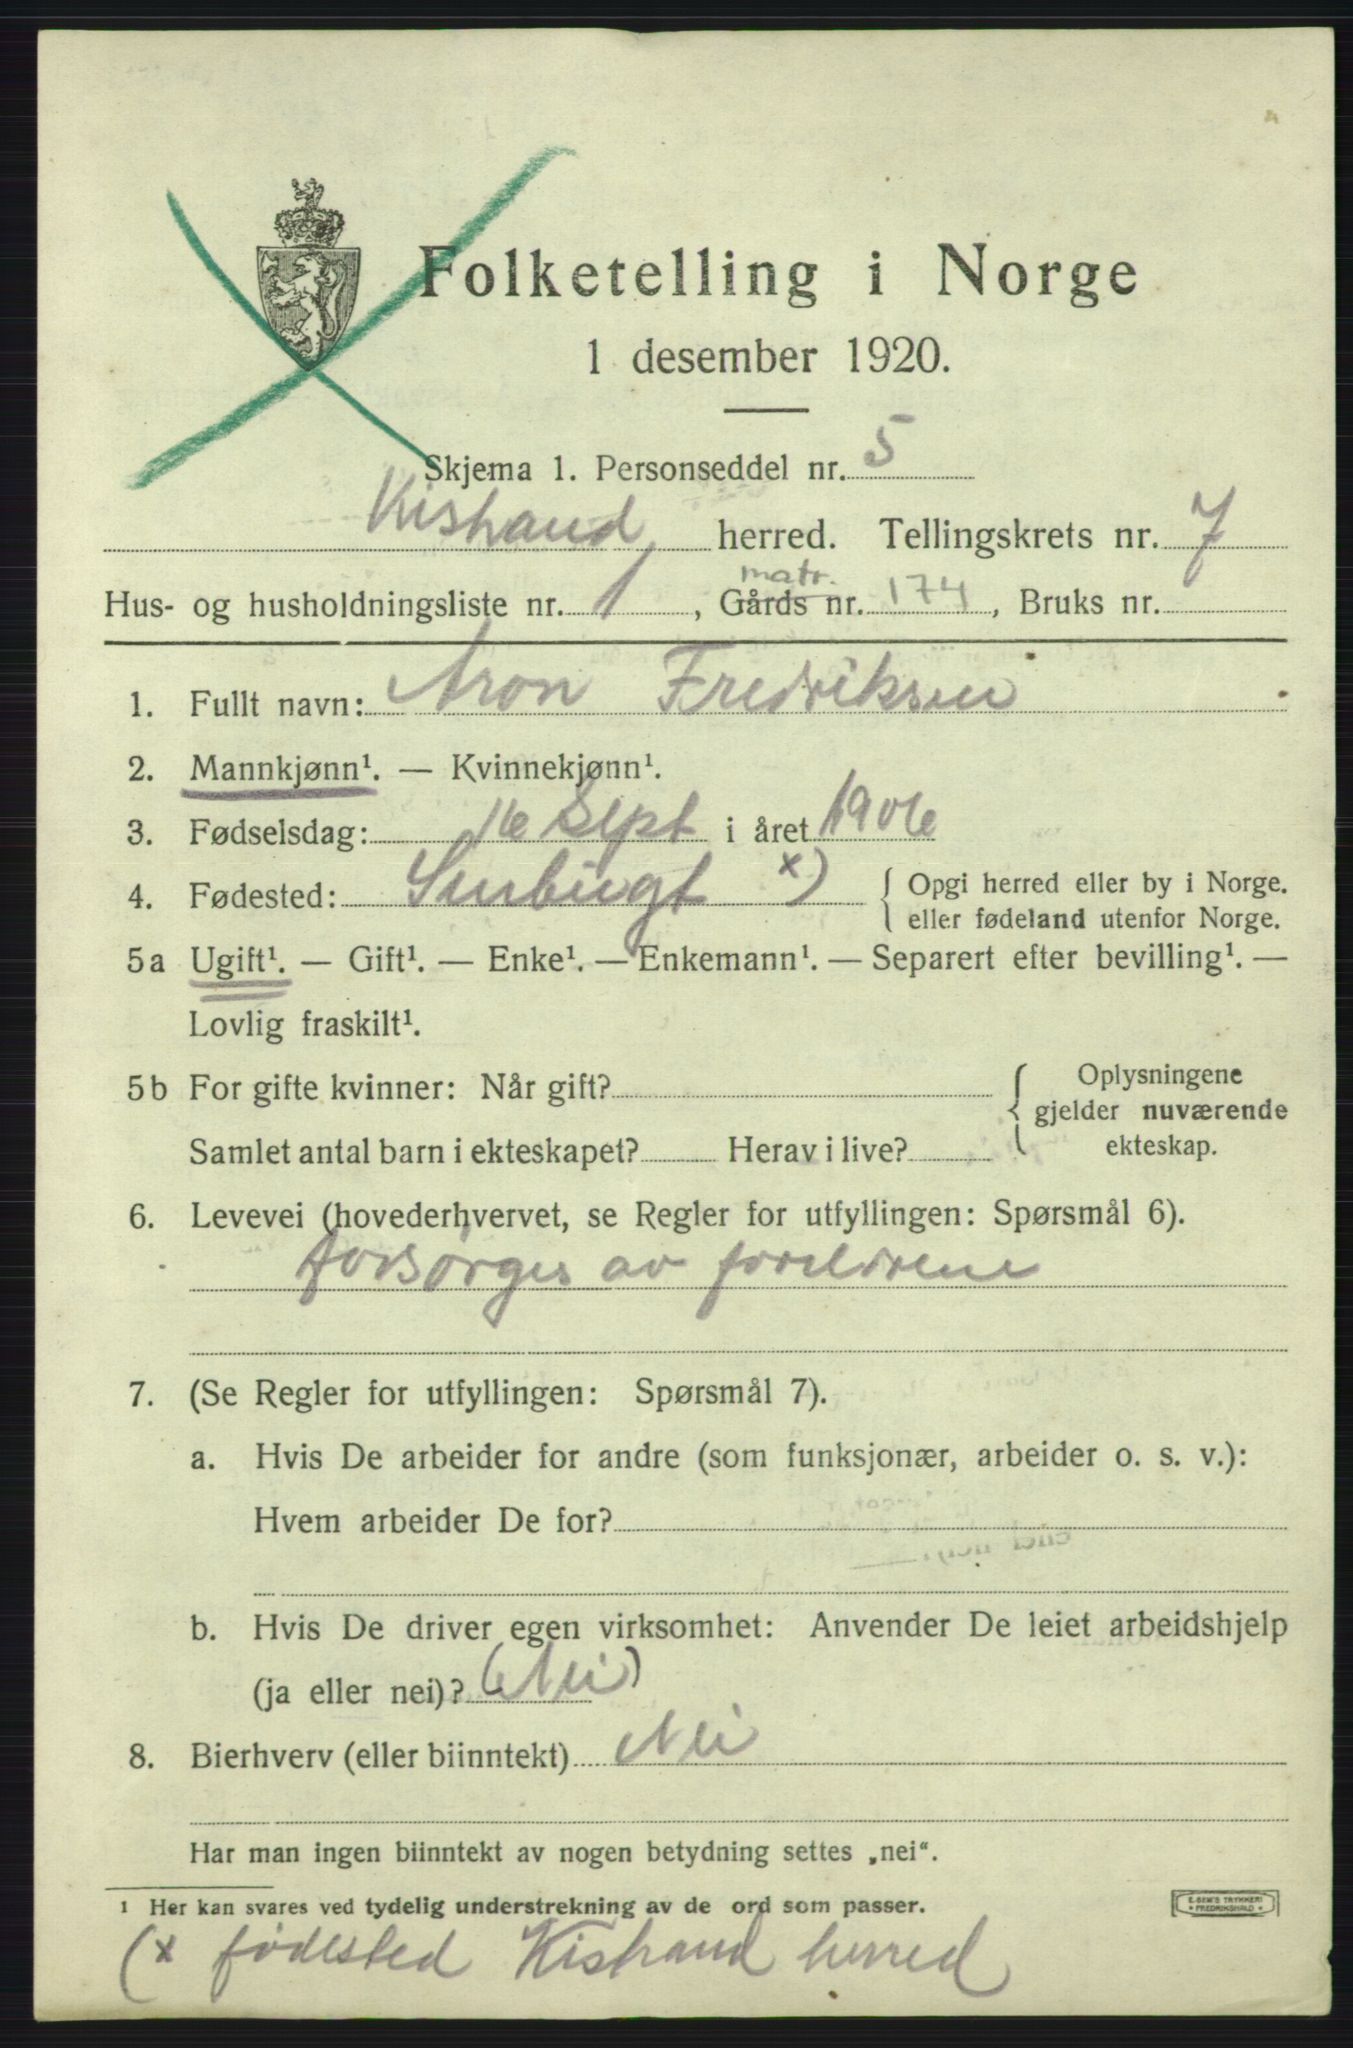 Folketelling i Norge
1 desember 1920.
Skjema 1. Personseddel nr. 5
Kistrand herred. Tellingskrets nr. 7
matr.
Hus- og husholdningsliste nr. 1, Gårds nr. 174, Bruks nr.
1. Fullt navn: Aron Fredriksen
2. Mannkjønn¹. — Kvinnekjønn¹.
3. Fødselsdag: 16 Sept i året 1906
4. Fødested: x) { Opgi herred eller by i Norge.
eller fødeland utenfor Norge.
5a Ugift¹. — Gift¹. — Enke¹. — Enkemann¹. — Separert efter bevilling¹. —
Lovlig fraskilt¹.
5b For gifte kvinner: Når gift? { Oplysningene
gjelder nuværende
Samlet antal barn i ekteskapet? Herav i live? ekteskap.
6. Levevei (hovederhvervet, se Regler for utfyllingen: Spørsmål 6).
Forsørges av foreldrene
7. (Se Regler for utfyllingen: Spørsmål 7).
a. Hvis De arbeider for andre (som funksjonær, arbeider o. s. v.):
Hvem arbeider De for?
b. Hvis De driver egen virksomhet: Anvender De leiet arbeidshjelp
(ja eller nei)? (Nei)
8. Bierhverv (eller biinntekt) Nei
Har man ingen biinntekt av nogen betydning settes „nei“.
1 Her kan svares ved tydelig understrekning av de ord som passer.
E. SEM'S TRYKKERI
FREDRIKSHALD
(x fødested Kistrand herred